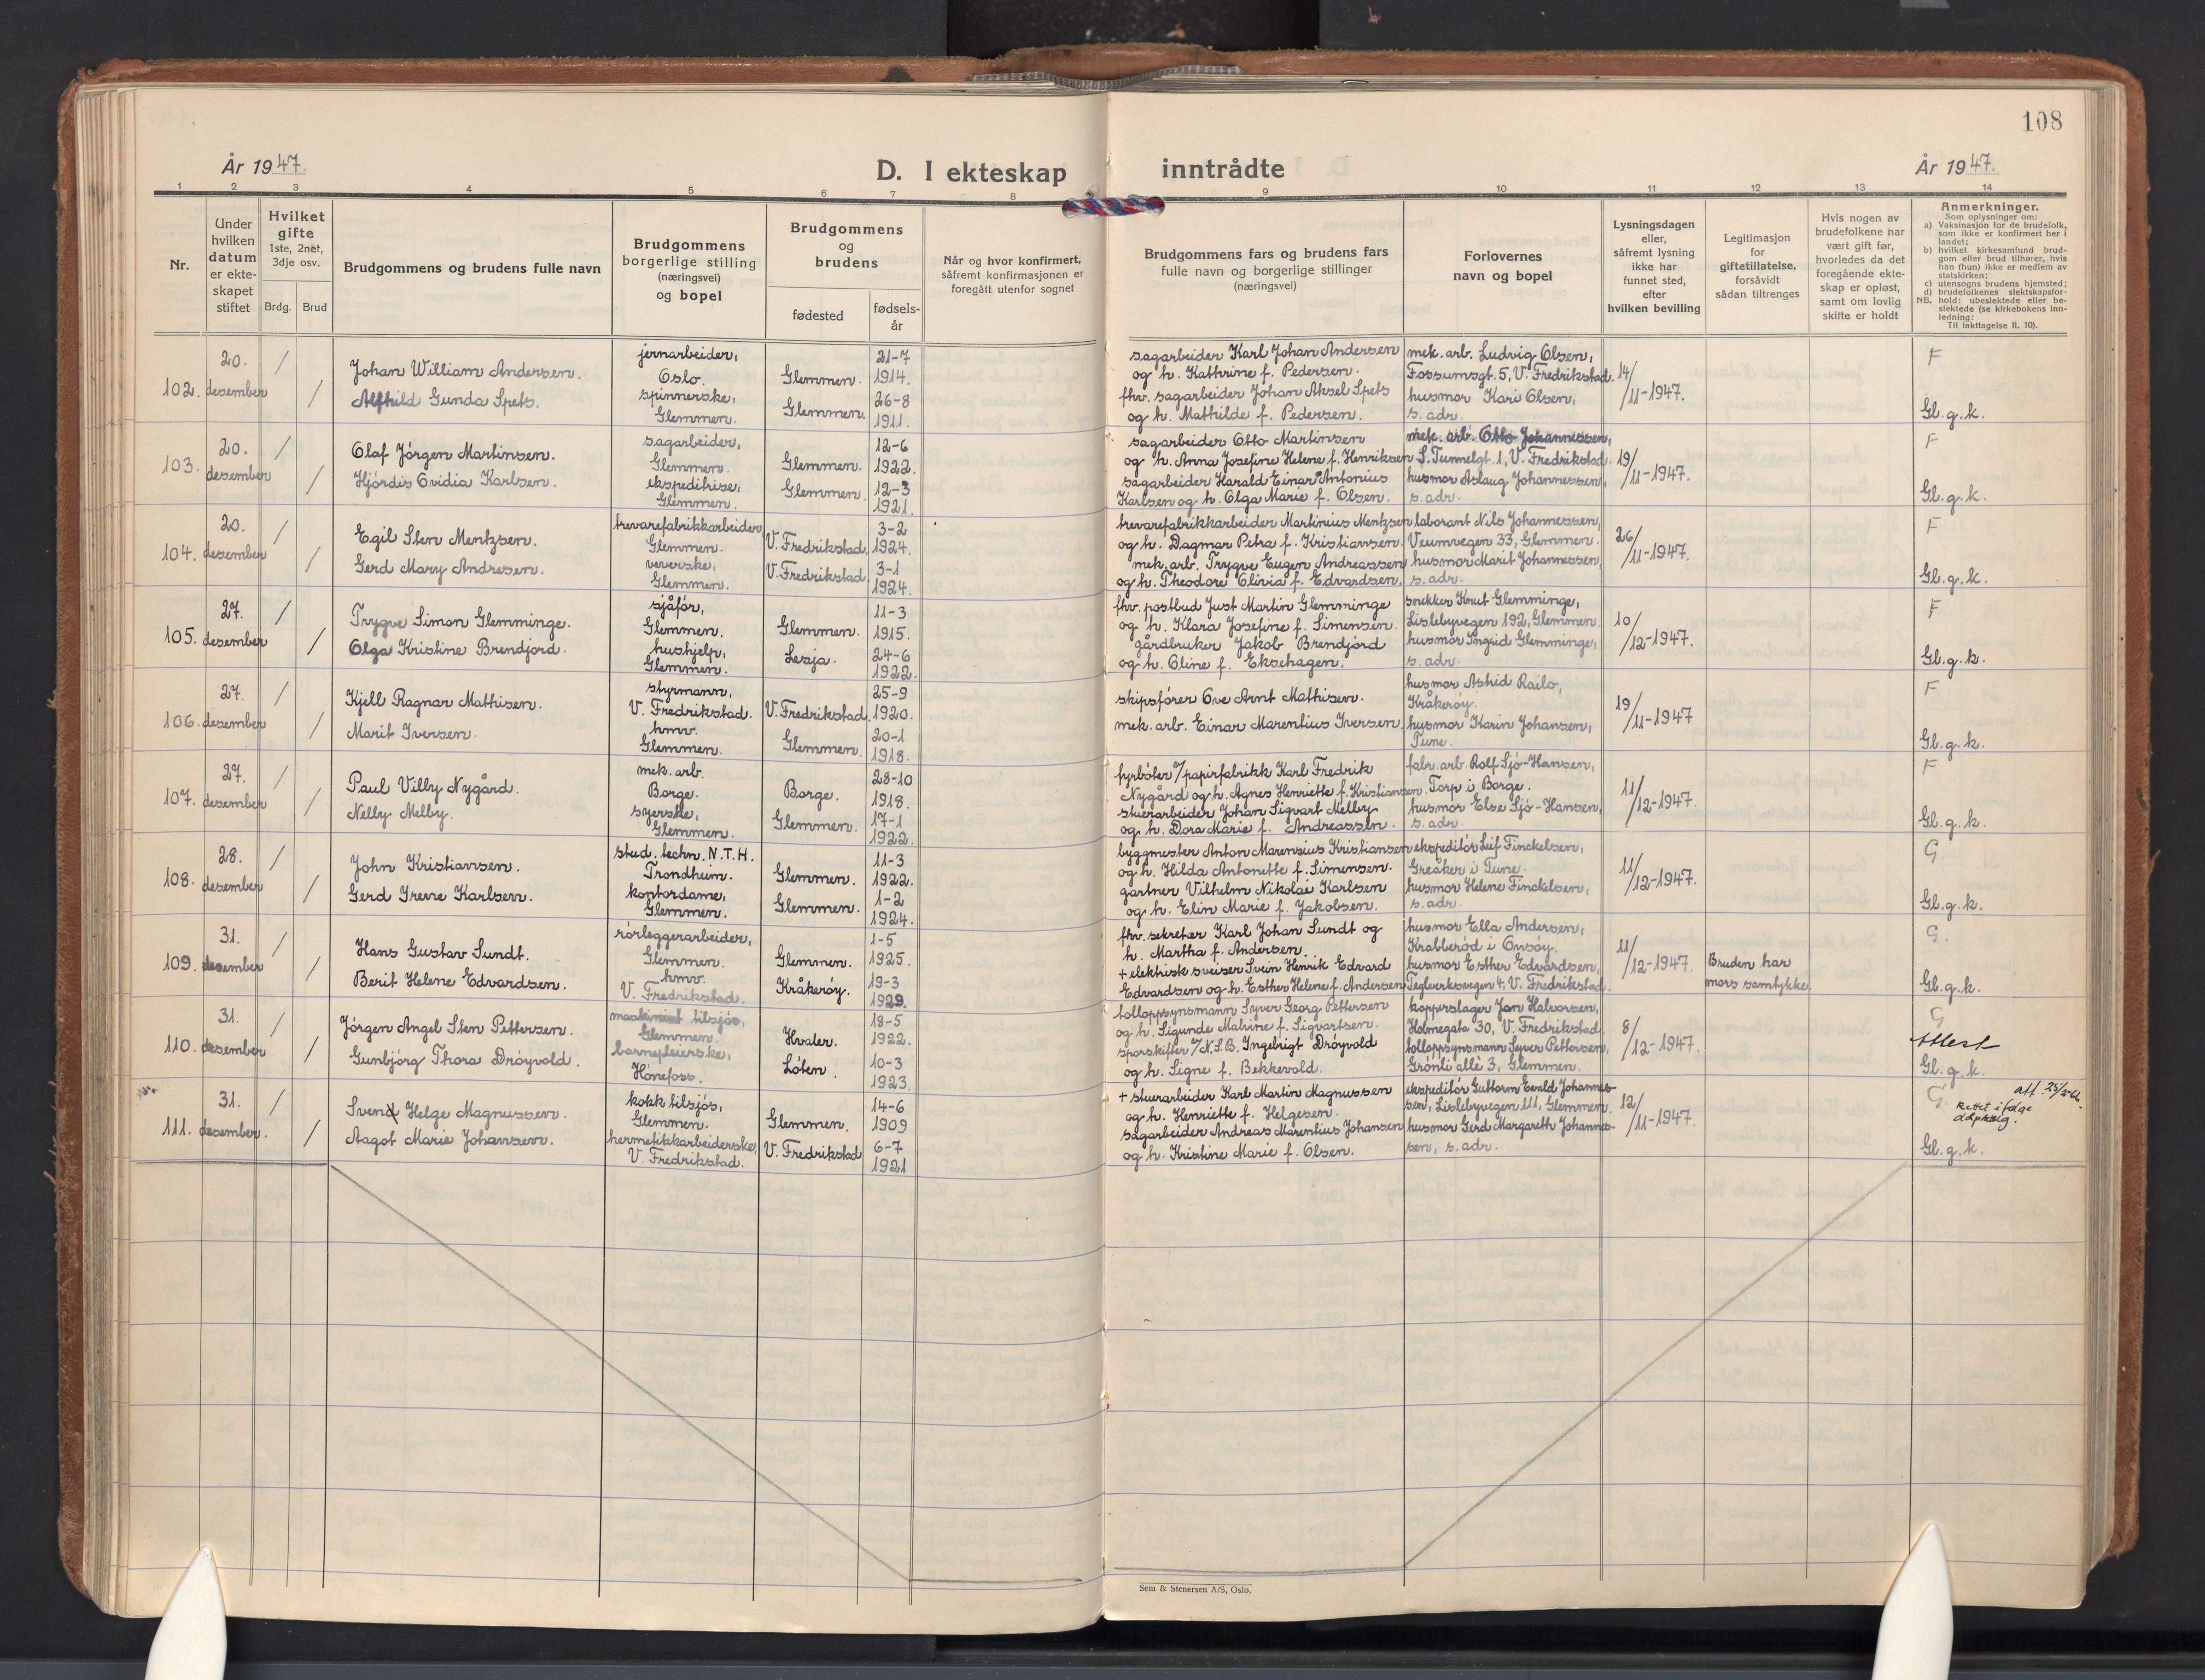 108
År 1947.
D. I ekteskap inntrådte
År 1947.
1 2 3 4 5 6 7 8 9 10 11 12 13 14
Nr.
Under hvilken datum er ekteskapet stiftet
Hvilket gifte
1ste, 2net, 3dje osv.
Brdg. Brud
Brudgommens og brudens fulle navn
Brudgommens borgerlige stilling (næringsvei) og bopel
Brudgommens og brudens
fødested
fødsels-år
Når og hvor konfirmert, såfremt konfirmasjonen er foregått utenfor sognet
Brudgommens fars og brudens fars fulle navn og borgerlige stillinger (næringsvei)
Forlovernes navn og bopel
Lysningsdagen eller, såfremt lysning ikke har funnet sted, efter hvilken bevilling
Legitimasjon for giftetillatelse, forsåvidt sådan tiltrenges
Hvis nogen av brudefolkene har vært gift før, hvorledes da det foregående ekteskap er opløst, samt om lovlig skifte er holdt
Anmerkninger.
Som oplysninger om:
a) Vaksinasjon for de brudefolk, som ikke er konfirmert her i landet;
b) hvilket kirkesamfund brudgom eller brud tilhører, hvis han (hun) ikke er medlem av statskirken;
c) utensogns brudens hjemsted;
d) brudefolkenes slektskapsforhold: ubeslektede eller beslektede (se kirkebokens innledning:
NB. Til iakttagelse II, 10).
102. 20. desember / /
Johan William Andersen.
Alfhild Gunda Spets.
jernarbeider,
Oslo.
spinnerske,
Glemmen.
Glemmen.
Glemmen.
21-7
1914.
26-8
1911.
sagarbeider Karl Johan Andersen
og h. Kathrine f. Pedersen.
fhv. sagarbeider Johan Aksel Spets
og h. Mathilde f. Pedersen.
mek. arb. Ludvig Olsen,
Fossumsgt. 5, V. Fredrikstad.
husmor Kari Olsen,
s. adr.
14/11-1947.
F
Gl. g. k.
103. 20. desember / /
Olaf Jörgen Martinsen.
Hjördis Ovidia Karlsen.
sagarbeider,
Glemmen.
ekspeditrise,
Glemmen.
Glemmen.
Glemmen.
12-6
1922.
12-3
1921.
sagarbeider Otto Martinsen
og h. Anna Josefine Helene f. Henriksen
sagarbeider Harald Einar Antonius
Karlsen og h. Olga Marie f. Olsen.
mek. arb. Otto Johannessen,
S. Tunnelgt. 1, V. Fredrikstad.
husmor Aslaug Johannessen,
s. adr.
19/11-1947.
F
Gl. g. k.
104. 20. desember / /
Egil Sten Mentzsen.
Gerd Mary Andresen.
trevarefabrikkarbeider,
Glemmen.
veverske,
Glemmen.
V. Fredrikstad.
V. Fredrikstad.
3-2
1924.
3-1
1924.
trevarefabrikkarbeider Martinius Mentzsen
og h. Dagmar Petra f. Kristiansen.
mek. arb. Trygve Eugen Andreassen
og h. Theodore Olivia f. Edvardsen.
laborant Nils Johannessen,
Veumvegen 33, Glemmen.
husmor Marit Johannessen,
s. adr.
26/11-1947.
F
Gl. g. k.
105. 27. desember / /
Trygve Simon Glemminge.
Olga Kristine Brendjord.
sjåför,
Glemmen.
hushjelp,
Glemmen.
Glemmen.
Lesja.
11-3
1915.
24-6
1922.
fhv. postbud Just Martin Glemminge
og h. Klara Josefine f. Simensen.
gårdbruker Jakob Brendjord
og h. Oline f. Eksehagen.
snekker Knut Glemminge,
Lislebyvegen 192, Glemmen.
husmor Ingrid Glemminge,
s. adr.
10/12-1947.
F
Gl. g. k.
106. 27. desember / /
Kjell Ragnar Mathisen.
Marit Iversen.
styrmann,
V. Fredrikstad.
hmv.
Glemmen.
V. Fredrikstad.
Glemmen.
25-9
1920.
20-1
1918.
skipsfører Ove Arnt Mathisen.
mek. arb. Einar Marentius Iversen.
husmor Astrid Railo,
Kråkeröy.
husmor Karin Johansen,
Tune.
19/11-1947
F
Gl. g. k.
107. 27. desember / /
Paul Villy Nygård.
Nelly Melby.
mek. arb.
Borge.
syerske,
Glemmen.
Borge.
Glemmen.
28-10
1918.
17-1
1922.
fyrböter v/papirfabrikk Karl Fredrik
Nygård og h. Agnes Henriette f. Kristiansen.
stuerarbeider Johan Sigvart Melby
og h. Dora Marie f. Andreassen.
fabr. arb. Rolf Sjö-Hansen,
Torp i Borge.
husmor Else Sjö-Hansen,
s. adr.
11/12-1947.
F
Gl. g. k.
108. 28. desember / /
John Kristiansen.
Gerd Irene Karlsen.
stud. techn. N.T.H.
Trondheim.
kontordame,
Glemmen.
Glemmen.
Glemmen.
11-3
1922.
1-2
1924.
byggmester Anton Marensius Kristiansen
og h. Hilda Antonette f. Simensen.
gartner Vilhelm Nikolai Karlsen
og h. Elin Marie f. Jakobsen.
ekspeditör Leif Finckelsen,
Greåker i Tune.
husmor Helene Finckelsen,
s. adr.
11/12-1947.
G
Gl. g. k.
109. 31. desember / /
Hans Gustav Sundt.
Berit Helene Edvardsen.
rörleggerarbeider,
Glemmen.
hmv.
V. Fredrikstad.
Glemmen.
Kråkeröy.
1-5
1925.
19-3
1929.
fhv. sekretær Karl Johan Sundt og
h. Martha f. Andersen.
+ elektrisk sveiser Svein Henrik Edvard
Edvardsen og h. Esther Helene f. Andersen
husmor Ella Andersen,
Krabberöd i Onsöy.
husmor Esther Edvardsen,
Teglverksvegen 4, V. Fredrikstad.
11/12-1947.
Bruden har
mors samtykke.
G.
Gl. g. k.
110. 31. desember / /
Jörgen Angel Sten Pettersen.
Gunbjörg Thora Dröyvold.
maskinist tilsjös,
Glemmen.
barnepleierske,
Hönefoss.
Hvaler.
Löten.
18-5
1922.
10-3
1923.
tolloppsynsmann Syver Georg Pettersen
og h. Sigunde Malvine f. Sigvartsen.
sporskifter v/N.S.B. Ingebrigt Dröyvold
og h. Signe f. Bekkevold.
kopperslager Jan Halvorsen,
Holmegata 30, V. Fredrikstad.
tolloppsynsmann Syver Pettersen,
Grönli allè 3, Glemmen.
8/12-1947.
G
Attest
Gl. g. k.
111. 31. desember. / /
Svend Helge Magnussen.
Aagot Marie Johansen.
kokk tilsjös,
Glemmen.
hermetikkarbeiderske,
V. Fredrikstad.
Glemmen.
V. Fredrikstad
14-6
1909
6-7
1921
+ stuerarbeider Karl Martin Magnussen
og h. Henriette f. Helgesen.
sagarbeider Andreas Marentius Johansen
og h. Kristine Marie f. Olsen.
ekspeditör Guttorm Evald Johannes-
sen, Lislebyvegen 111, Glemmen.
husmor Gerd Margareth Johannes-
sen, s. adr.
12/11-1947.
G.
Rettet ifølge
Gl. g. k.
Sem & Stenersen A/S, Oslo.